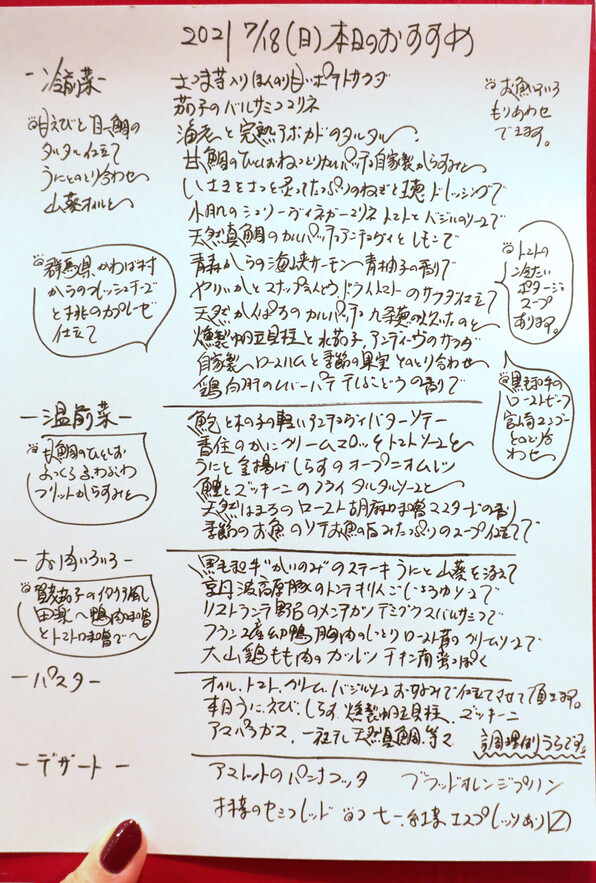 2021 7/18(日)本日のおすすめ
-冷前菜-
甘えびと真鯛の
タルタル仕立て
うにとのとり合わせ
山葵オイルと
群馬県かわば村
からのフレッシュチーズ
と桃のカプレーゼ
仕立て
さつま芋入りほんのり甘いポテトサラダ
茄子のバルサミコマリネ
海老と完熟アボカドのタルタル
甘鯛のひとしおねっとりカルパッチョ自家製からすみと
いさきをさっと炙ってたっぷりのねぎと
ドレッシングで
小肌のシェリーヴィネガーマリネ トマトとバジルのソースで
天然真鯛のカルパッチョアンチョヴィとレモンで
青森からの海峡サーモン 青柚子の香りで
やりいかとスナップえんどうドライトマトのサラダ仕立て
天然かんぱちのカルパッチョ 九条葱の
燻製帆立貝柱と水茄子、アンディーヴのサラダ
自家製ロースハムと季節の果実とのとり合わせ
鶏白肝のレバーパテ干しぶどうの香りで
お魚いろいろ
もりあわせ
できます。
トマトの
冷たい
ポタージュ
スープ
あります。
黒毛和牛の
ローストビーフ
宮崎マンゴー
とのとり合
わせ
-温前菜-
甘鯛のひとしお
ふっくらふわふわ
フリットからすみと
鮑と木の子の軽いアンチョヴィバターソテー
香住のかにクリームコロッケトマトソースと
うにと釜揚げしらすのオープンオムレツ
鱧とズッキーニのフライ タルタルソースと
天然はまちのロースト胡麻味噌マスタードの香り
季節のお魚のソテーお魚の旨みたっぷりのスープ仕立てで
-お肉いろいろ-
賀茂茄子のイタリア風
田楽〜鴨肉味噌
とトマト味噌で〜
黒毛和牛"かいのみ"のステーキうにと山葵を添えて
京丹波高原豚のトンテキりんごしょうゆソースで
リストランテ野呂のメンチカツ デミグラスバルサミコで
フランス産幼鴨胸肉のしっとりロースト茸のクリームソースで
大山鶏もも肉のカツレツ チキン南蛮っぽく
-パスタ-
オイル、トマト、クリーム、バジルソースお好みで仕立てさせて頂きます。
本日うに、えび、しらす、燻製帆立貝柱、ズッキーニ
アスパラガス、一夜干し天然真鯛、等々
調理例うらです。
-デザート-
アマレットのパンナコッタ ブラッドオレンジプリン
抹茶のセミフレッド
紅茶 エスプレッソあり